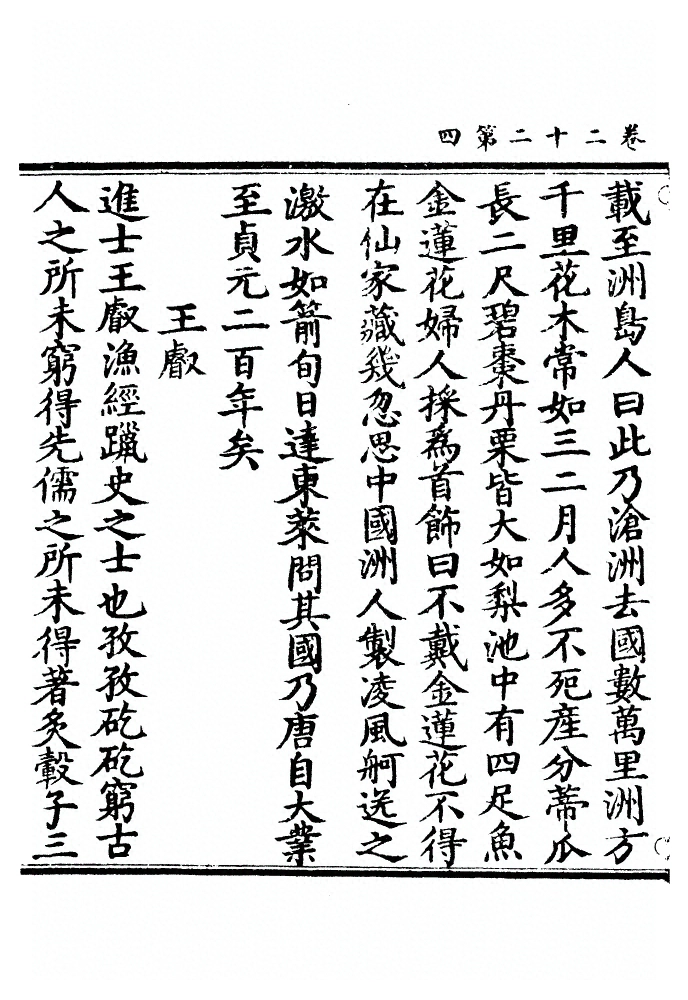 卷二十二第四
載至洲島人曰此乃滄洲去國數萬里洲方
千里花木常如三二月人多不死産分蒂瓜
長二尺碧棗丹栗皆大如梨池中有四足魚
金蓮花婦人採為首飾曰不戴金蓮花不得
在仙家藏幾忽思中國洲人製凌風舸送之
激水如箭旬日達東萊問其國乃唐自大業
至貞元二百年矣
王叡
進士王叡漁經躐史之士也孜孜矻矻窮古
人之所未窮得先儒之所未得著炙轂子三